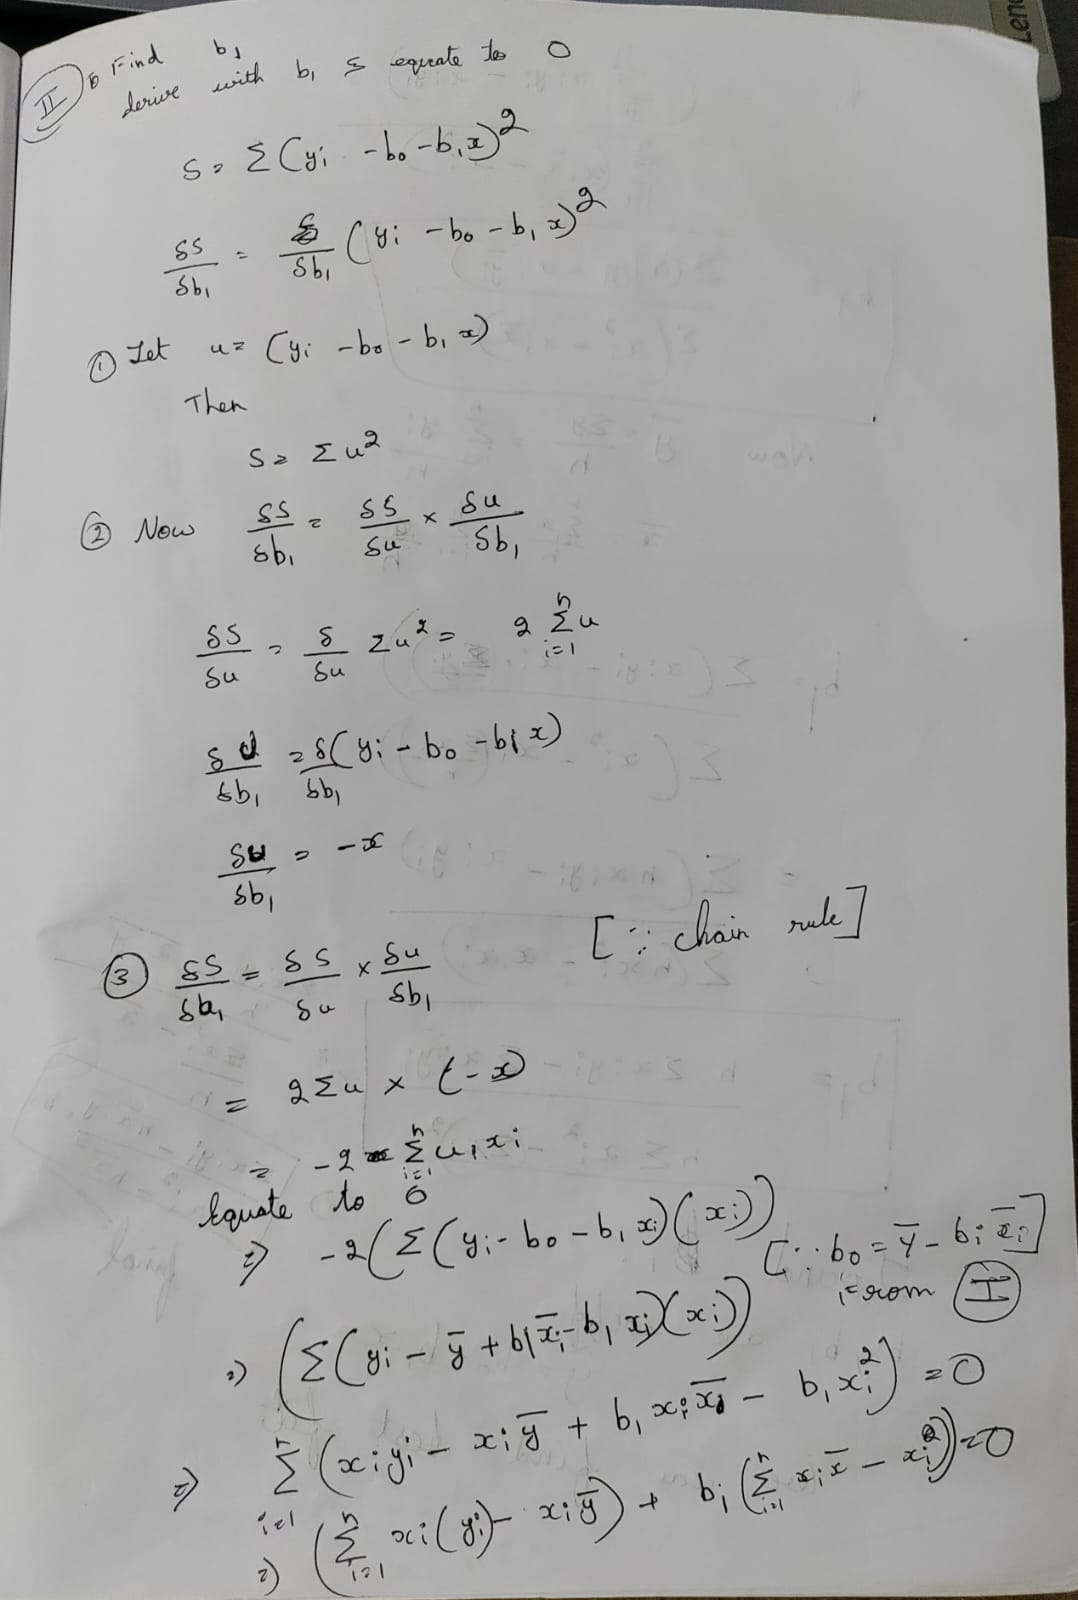 II Find b₁
derive with b₁ & equate to 0
S = Σ(yᵢ - b₀ - b₁x)²
δS/δb₁ = δ/δb₁ (yᵢ - b₀ - b₁x)²
① Let u = (yᵢ - b₀ - b₁x)
Then
S = Σu²
② Now δS/δb₁ = δS/δu × δu/δb₁
δS/δu = δ/δu Σu² = 2 Σⁿᵢ₌₁ u
δu/δb₁ = δ(yᵢ - b₀ - b₁x)/δb₁
δu/δb₁ = -x
[∵ chain rule]
③ δS/δb₁ = δS/δu × δu/δb₁
= 2Σu × (-x)
= -2 Σⁿᵢ₌₁ uᵢxᵢ
Equate to 0
⇒ -2(Σ(yᵢ - b₀ - b₁xᵢ)(xᵢ)) [∵ b₀ = ȳ - bᵢx̄ᵢ]
From I
⇒ (Σ(yᵢ - ȳ + b₁x̄ᵢ - b₁xᵢ)(xᵢ))
⇒ Σⁿᵢ₌₁ (xᵢyᵢ - xᵢȳ + b₁xᵢx̄ᵢ - b₁xᵢ²) = 0
⇒ (Σⁿᵢ₌₁ xᵢ(yᵢ) - xᵢȳ) + bᵢ(Σⁿᵢ₌₁ xᵢx̄ - xᵢ²) = 0